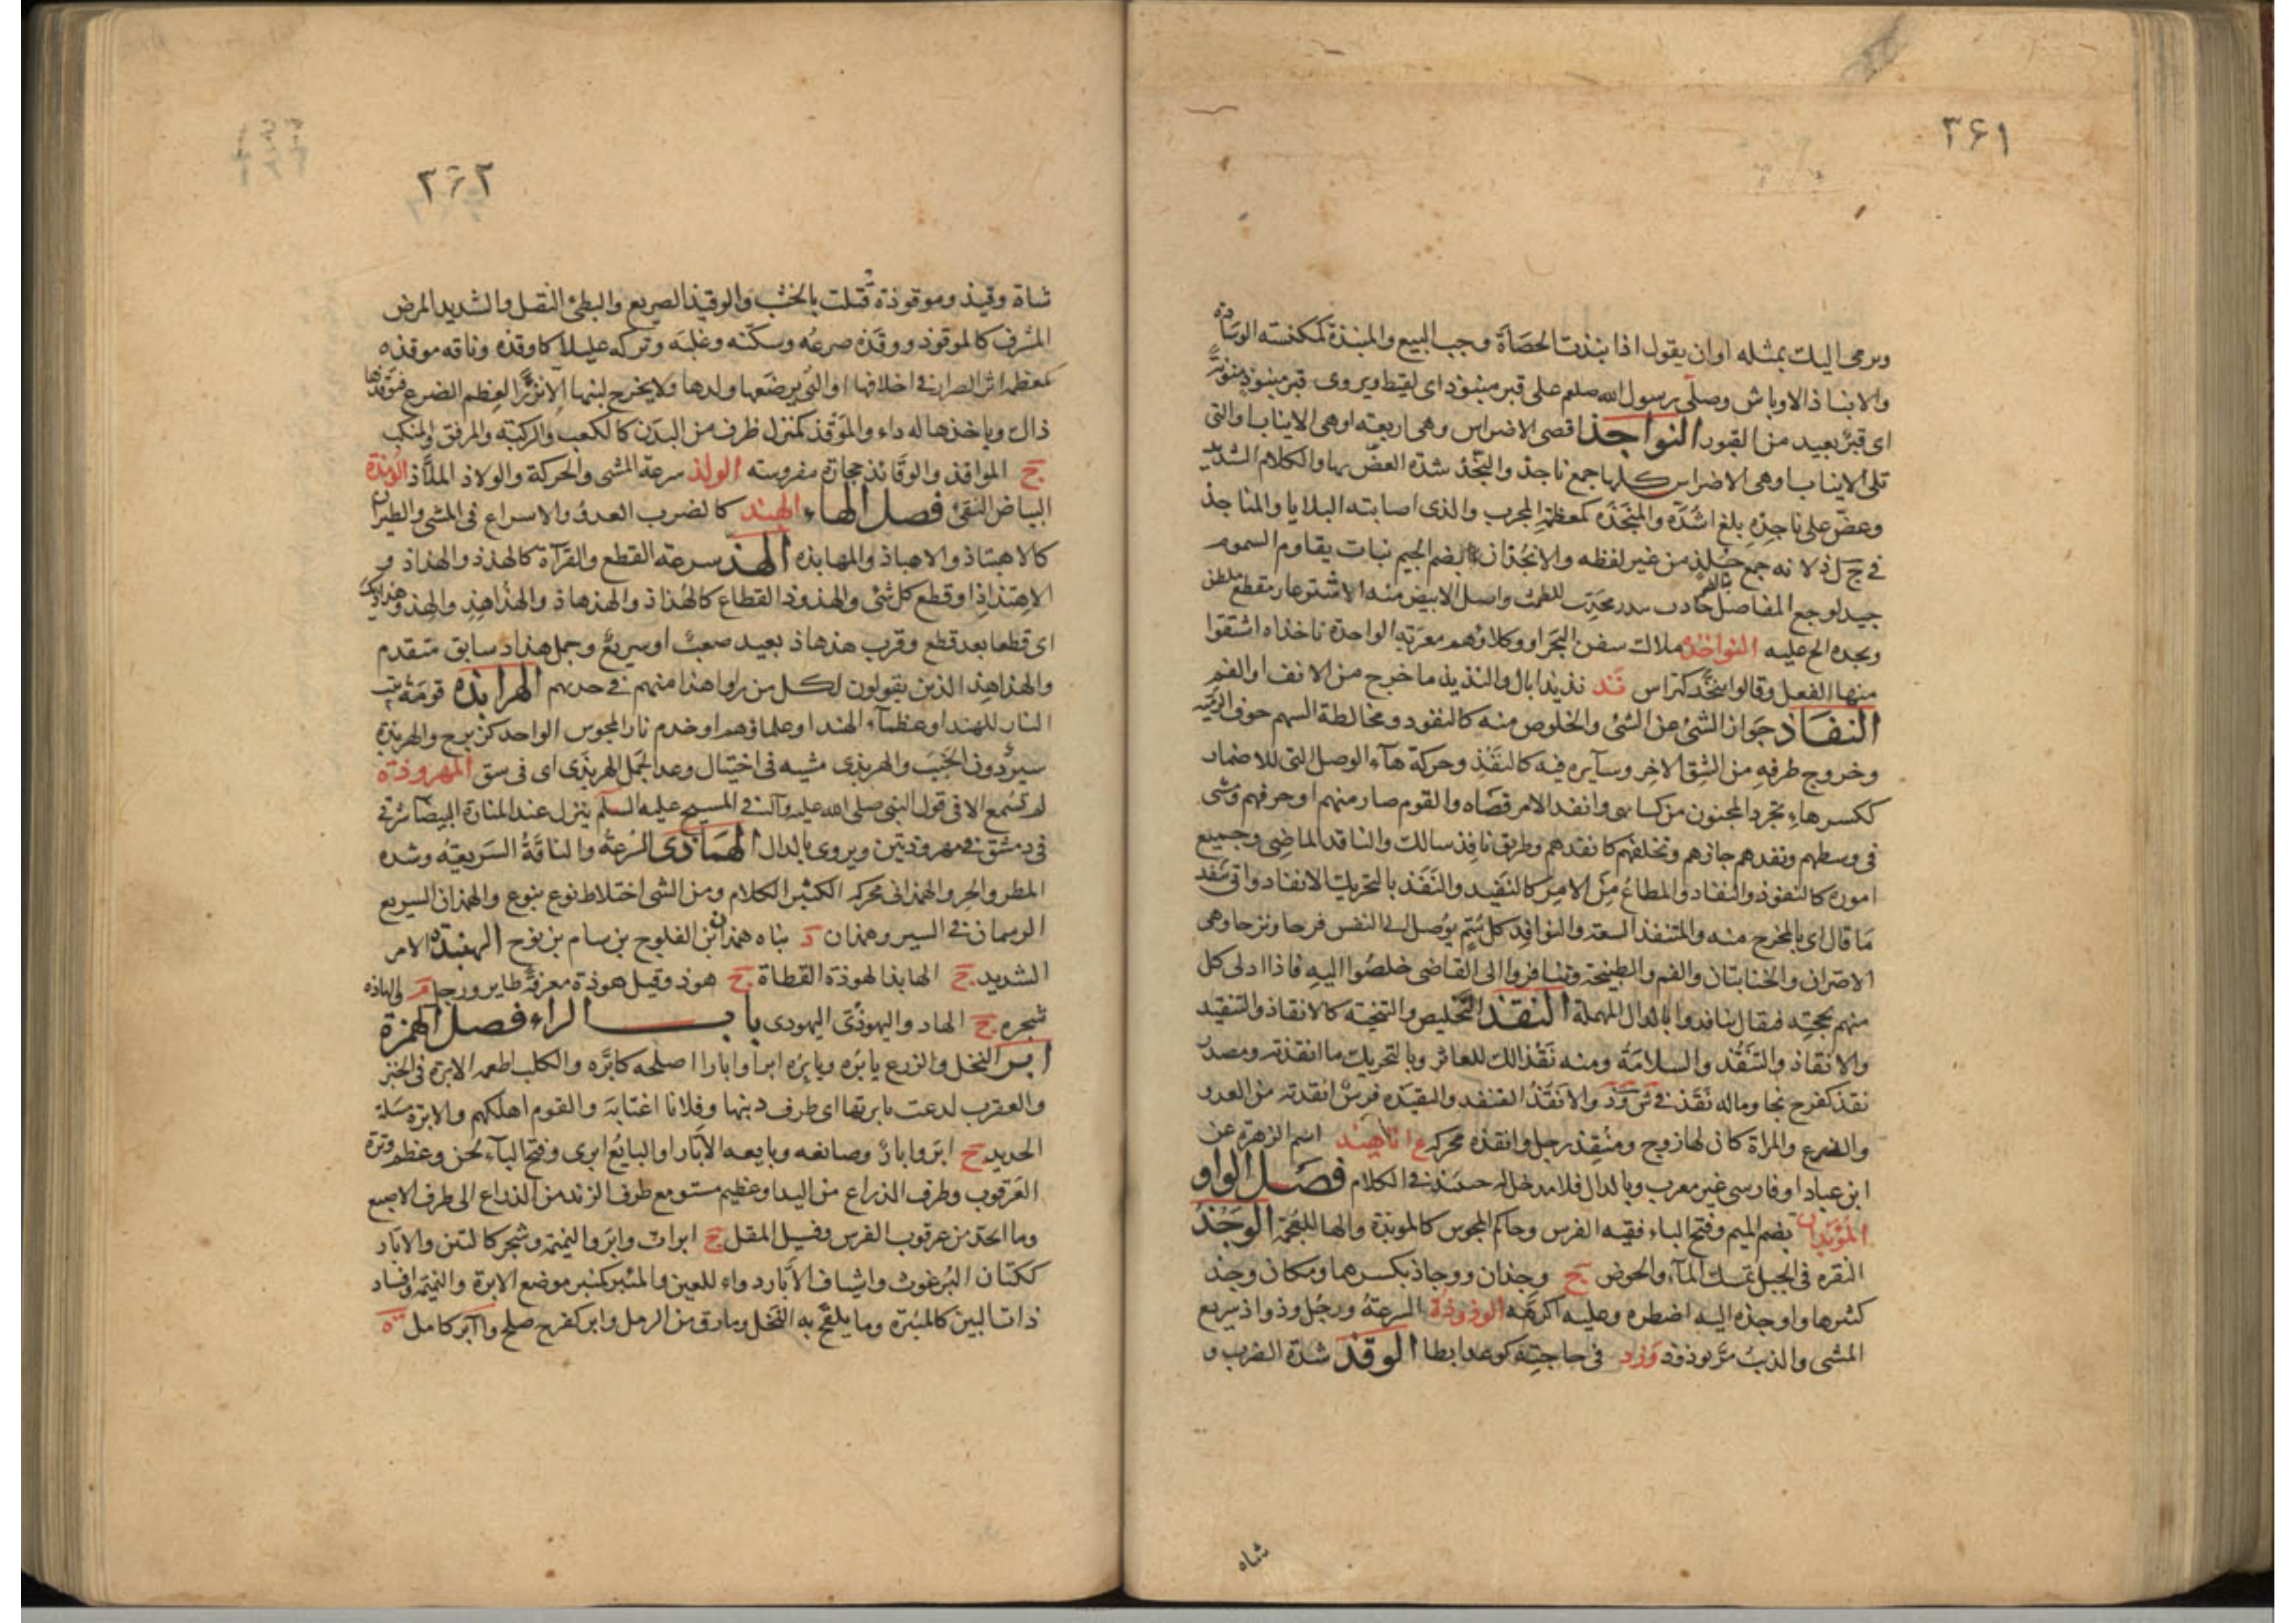 ۳۶۱
ويرمى اليك بمثله او ان يقول اذا نبذت الحصاة وجب البيع والمنبذة كمكنسته الوسادة
والانباذ الاوباش وصلى رسول الله صلعم على قبر منبوذ اى لقيط ويروى قبر منبوذ منونة
اى قبر بعيد من القبور النواجذ اقصى الاضراس وهى اربعة او هى الانياب او التى
تلى الانياب او هى الاضراس كلها جمع ناجذ والنجذ شدة العض بها والكلام الشديد
وعض على ناجذه بلغ اشده والمنجذة كمعظم المجرب والذى اصابته البلايا والمناجذ
فى ج ل ذ لانه جمع جلذ من غير لفظه والانجذان بضم الجيم نبات يقاوم السموم
جيد لوجع المفاصل جاذب مدر محدر للطمث واصل الابيض منه الاشترغار مقطع ملطف
ونجذه الح عليه النواخذة ملاك سفن البحر او وكلاؤهم معربة الواحدة ناخذاه اشتقوا
منها الفعل وقالوا تنخذ كتراس نذ نذيذا بال والنذيذ ما خرج من الانف او الفم
النفاذ جواز الشئ عن الشئ والخلوص منه كالنفوذ ومخالطة السهم جوف الرمية
وخروج طرفه من الشق الاخر وسائره فيه كالنفذ وحركة هآء الوصل التى للاضمار
ككسر هاء تجرد المجنون من كسائه وانفذ الامر قضاه والقوم صار منهم او خرقهم ومشى
فى وسطهم ونفذهم جازهم وتخلفهم كانفذهم وطريق نافذ سالك والنافذ الماضى وجميع
اموره كالنفوذ والنفاذ والمطاع من الامر كالنفيذ والنفذ بالتحريك الانفاذ واتى بنفذ
ما قال اى بالمخرج منه والمتنفذ السعة والنوافذ كل سم يوصل الى النفس فرحا وترحا وهى
الاصران والخنابتان والفم والطبيجة وتنافروا الى القاضى خلصوا اليه فاذا ادلى كل
منهم بحجته فيقال تنافدوا بالدال المهملة النقذ التخليص والتنجية كالانقاذ والتنقيذ
والانقاذ والتنقذ والسلامة ومنه نقذا لك للعاثر وبالتحريك ما انقذته ومصدر
نقذ كفرح نجا وماله نقذ فى ش ق ذ والانقذ القنفذ والنقيذة فرس انقذته من العدو
والضرع والمراة كان لها زوج ومنقذ رجل وانقذة محركة ع اناهيذ اسم الزهرة عن
ابن عباد او فارسى غير معرب وبالدال فلا مدخل له حينئذ فى الكلام فصل الواو
الموبذان بضم الميم وفتح الباء فقيه الفرس وحاكم المجوس كالموبذة والها للعجمة الوجذ
النقره فى الجبل تمسك المآء والحوض ج وجذان ووجاذ بكسرهما ومكان وجذ
كثيرها واوجذه اليه اضطره وعليه اكرهه الوذوذة السرعة ورجل وذواذ سريع
المشى والذئب مر يوذوذ ورذ فى حاجته كوعد ابطا الوقذ شدة الضرب و
شاه
۳۶۲
شاة وقيذ وموقوذة قتلت بالخشب والوقيذ الصريع والبطئ الثقيل والشديد المرض
المشرف كالموقوذ ووقذه صرعه وسكنه وغلبه وتركه عليلا كاوقذه وناقه موقذه
كمعظمه اثر الصرار فى اخلافها او التى يرضعها ولدها فلا يخرج لبنها الا نزرا لعظم الضرع فيوقذها
ذاك وياخذها له داء والموقذ كمنزل طرف من البدن كالكعب والركبة والمرفق والمنكب
ج المواقذ والوقائذ حجارة مفروشة الولذ سرعة المشى والحركة والولاذ الملاذ الومذة
البياض النقى فصل الهاء الهبذ كالضرب العدو والاسراع فى المشى والطيران
كالاهتباذ والاهباذ والمهابذة الهذ سرعة القطع والقرآة كالهذذ والهذاذ و
الاهتذاذ او قطع كل شئ والهذوذ القطاع كالهذاذ والهذهاذ والهذاهذ والهذ وهذاذيك
اى قطعا بعد قطع وقرب هذهاذ بعيد صعب او سريع وجمل هذاذ سابق متقدم
والهذاهذ الذين يقولون لكل من راوا هذا منهم فى حدبهم الهرابذة قومة بيت
النار للهند او عظماء الهند او علماؤهم او خدم نار المجوس الواحد كزبرج والهربذة
سير دون الخبب والهربذى مشيه فى اختيال وعدا الجمل الهربذى اى فى شق المهروذة
لم تسمع الا فى قول النبى صلى الله عليه وآله فى المسيح عليه السلم ينزل عند المنارة البيضا شرقى
فى دمشق فى مهروذتين ويروى بالدال الهماذى السرعة والناقة السريعة وشده
المطر والحر والهمذانى محركه الكثير الكلام ومن الشى اختلاط نوع بنوع والهمذان السريع
الرسمان فى السير وهمذان د بناه همذان بن الفلوج بن سام بن نوح الهنبذة الامر
الشديد ج الهنابذ الهوذة القطاة ج هوذ وقيل هوذة معرفة طاير ورجل م والهاذة
شجرة ج الهاذ واليهوذى اليهودى باب الراء فصل الهمزة
ابر النخل والزرع يابره ويابره ابرا وابارا اصلحه كابره والكلب اطعمه الابرة فى الخبز
والعقرب لدغت بابرتها اى طرف ذنبها وفلانا اغتابه والقوم اهلكهم والابرة مسلة
الحديد ج ابر وابار وصانعه وبايعه الابار او البايع ابرى وفتح الباء لحن وعظم وترة
العرقوب وطرف الذراع من اليد او عظيم مستو مع طرف الزند من الذراع الى طرف الاصبع
وما انحد من عرقوب الفرس وفسيل المقل ج ابرات وابر والنميمة وشجر كالتين والابار
ككتان البرغوث واشياف الابار دواء للعين والمئبر كمنبر موضع الابرة والنميمة وافساد
ذات البين كالمئبرة وما يلقح به النخل وما رق من الرمل وابر كفرح صلح وآبر كامل ة